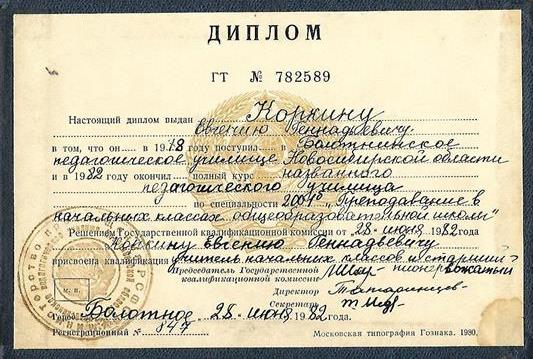 ДИПЛОМ
ГТ № 782589
Настоящий диплом выдан Коркину
Евгению Геннадьевичу
в том, что он в 1978 году поступил в Болотнинское
педагогическое училище Новосибирской области
и в 1982 году окончил полный курс названного
педагогического училища
по специальности 2001 "Преподавание в
начальных классах общеобразовательной школы"
Решением Государственной квалификационной комиссии от 28 июня 1982 года
Коркину Евгению Геннадьевичу
присвоена квалификация учитель начальных классов и старший
пионервожатый
Председатель Государственной
квалификационной комиссии
Директор
Секретарь
М. П.
Город Болотное 28 июня 1982 года.
Регистрационный № 847
Московская типография Гознака. 1980.